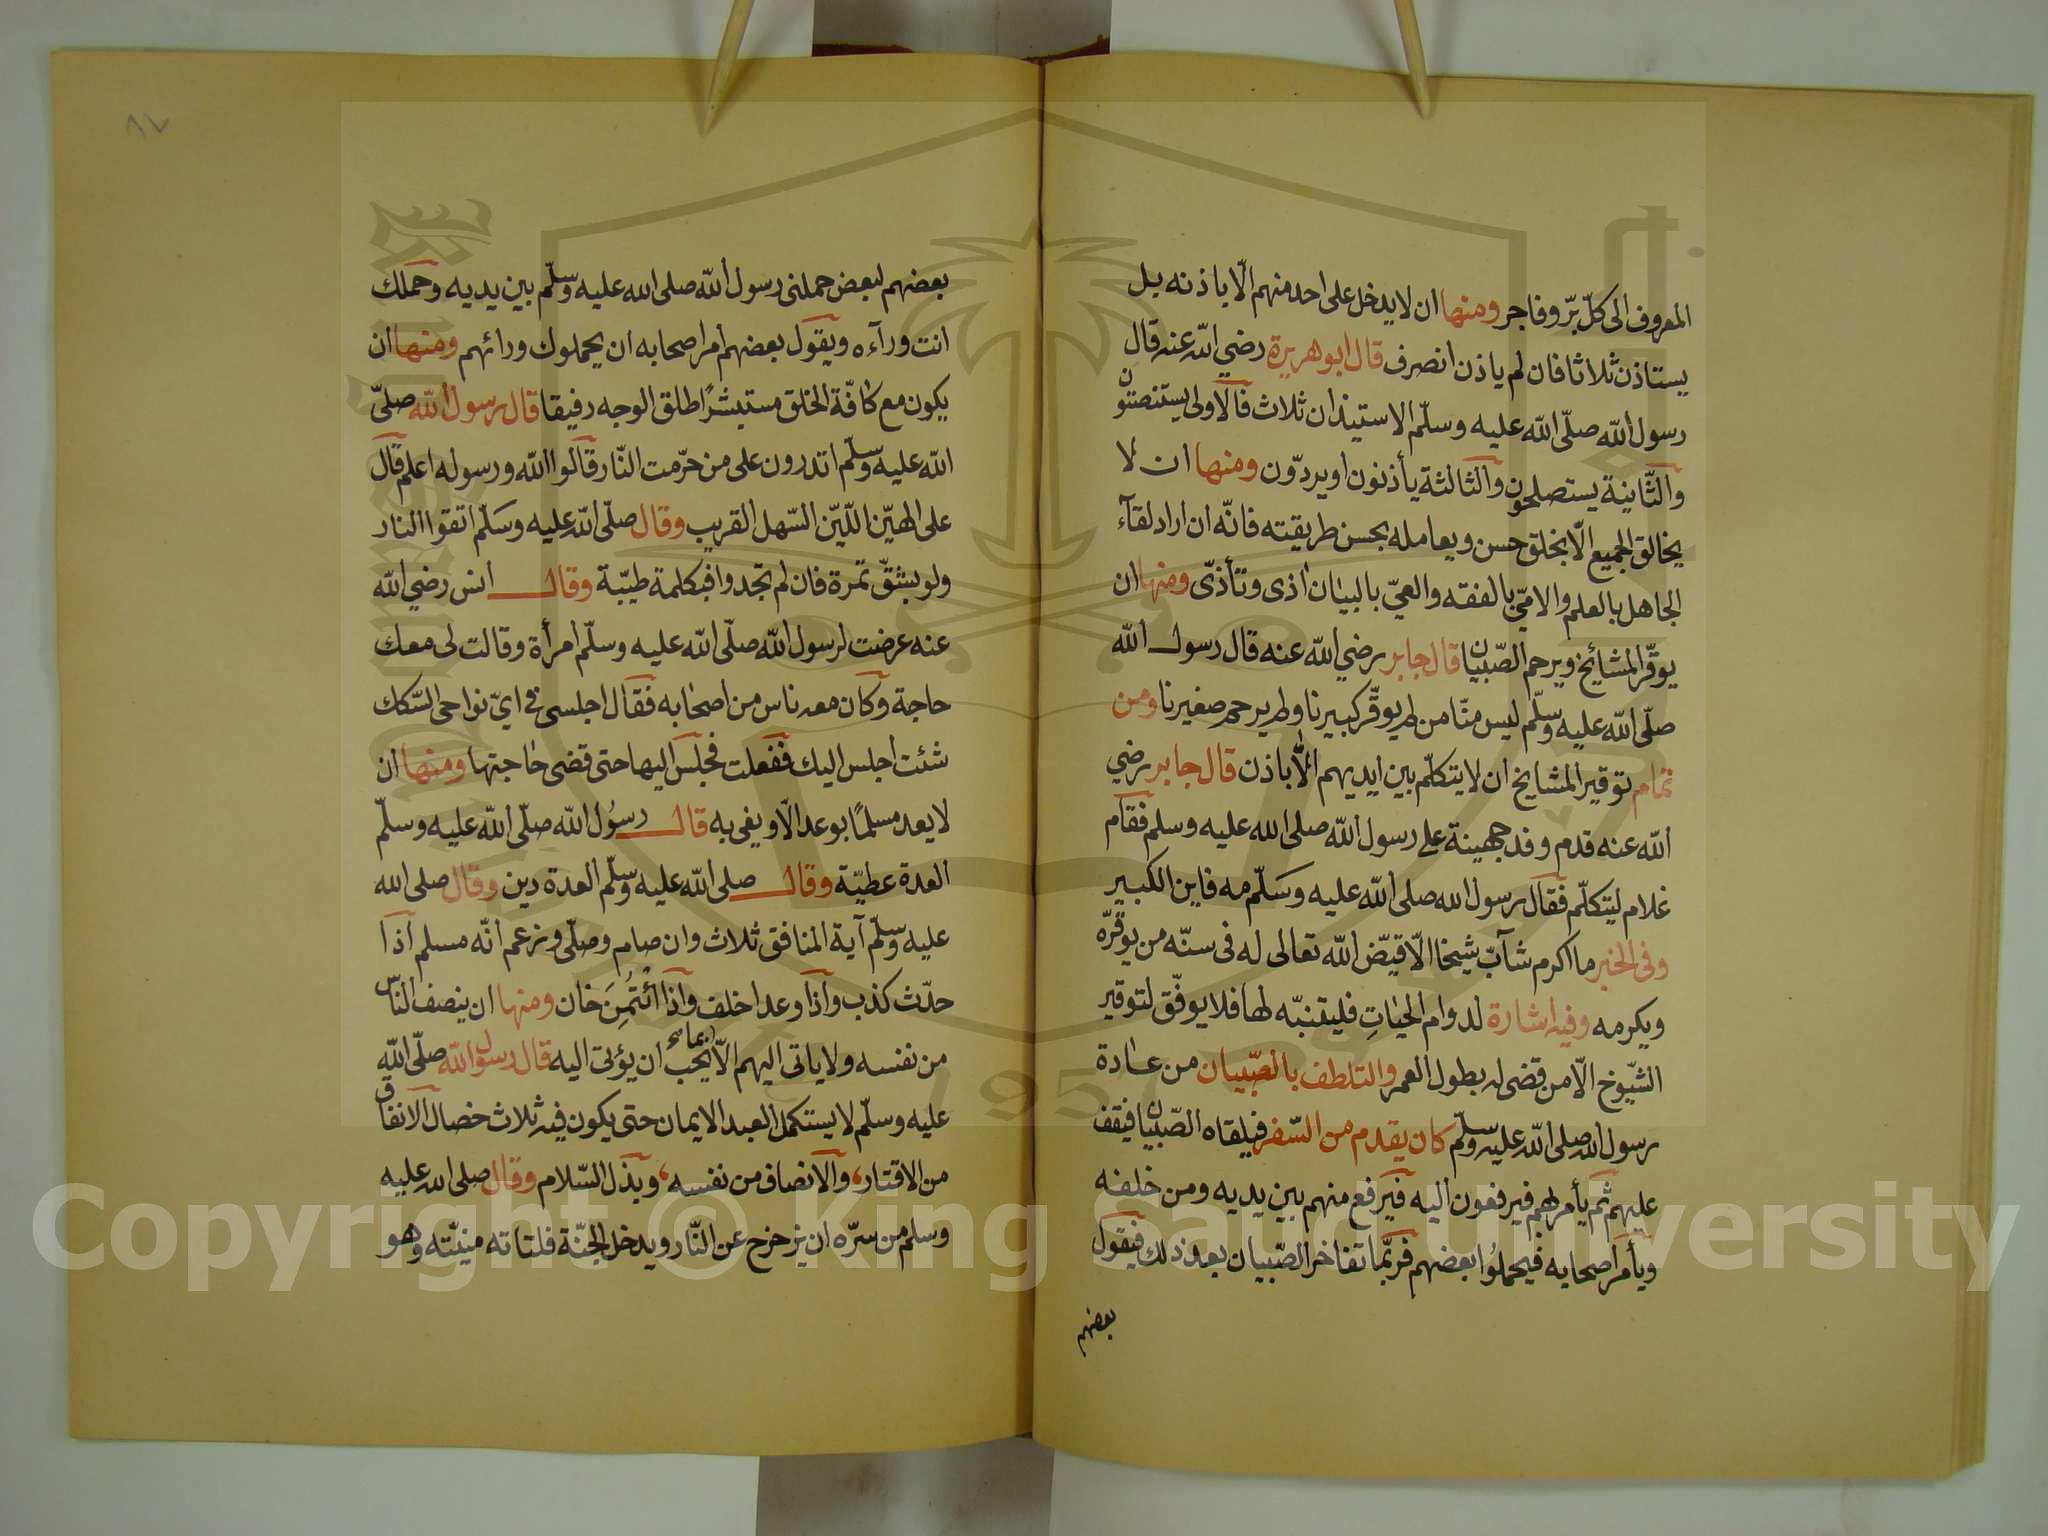 المعروف الى كلّ برّ وفاجر ومنها ان لا يدخل على احد منهم الّا باذنه بل
يستاذن ثلاثا فان لم ياذن انصرف قال ابو هريرة رضي الله عنه قال
رسول الله صلّى الله عليه وسلّم الاستيذان ثلاث فالاولى يستنصتون
والثّانية يستصلحون والثالثة يأذنون او يردّون ومنها ان لا
يخالق الجميع الّا بخلق حسن ويعامله بحسن طريقته فانّه ان اراد لقآء
الجاهل بالعلم والامّي بالفقه والعيّ بالبيان اذى وتأذّى ومنها ان
يوقّر المشائخ ويرحم الصّبيان قال جابر رضي الله عنه قال رسول الله
صلّى الله عليه وسلّم ليس منّا من لم يوقّر كبيرنا ولم يرحم صغيرنا ومن
تمام توقير المشايخ ان لا يتكلّم بين ايديهم الّا باذن قال جابر رضي
الله عنه قدم وفد جهينة على رسول الله صلى الله عليه وسلم فقام
غلام ليتكلّم فقال رسول الله صلى الله عليه وسلّم مه فاين الكبير
وفى الخبر ما اكرم شآبّ شيخا الّا قيّض الله تعالى له فى سنّه من يوقّره
ويكرمه وفيه اشارة لدوام الحيات فليتنبّه لها فلا يوفّق لتوقير
الشّيوخ الّا من قضى له بطول العمر والتلطف بالصّبيان من عادة
رسول الله صلى الله عليه وسلّم كان يقدم من السّفر فيلقاه الصّبيان فيقف
عليهم ثم يأمر لهم فيرفعون اليه فيرفع منهم بين يديه ومن خلفه
ويأمر اصحابه فيحملوا بعضهم فربّما تفاخر الصّبيان بعد ذلك فيقول
بعضهم
٨٧
بعضهم لبعض حملنى رسول الله صلى الله عليه وسلّم بين يديه وحملك
انت ورآءه ويقول بعضهم امر اصحابه ان يحملوك ورائهم ومنها ان
يكون مع كافّة الخلق مستبشرًا طلق الوجه رفيقا قال رسول الله صلّى
الله عليه وسلّم اتدرون على من حرّمت النّار قالوا الله ورسوله اعلم قال
على الهيّن اللّيّن السّهل القريب وقال صلّى الله عليه وسلّم اتقوا النار
ولو بشقّ تمرة فان لم تجدوا فبكلمة طيّبة وقال انس رضي الله
عنه عرضت لرسول الله صلّى الله عليه وسلّم امرأة وقالت لى معك
حاجة وكان معه ناس من اصحابه فقال اجلسى فى ايّ نواحى السّكك
شئت اجلس اليك ففعلت فجلس اليها حتى قضى حاجتها ومنها ان
لا يعد مسلمًا بوعد الّا ويفى به قال رسُول الله صلّى الله عليه وسلّم
العدة عطيّة وقال صلى الله عليه وسلّم العدة دين وقال صلى الله
عليه وسلّم آية المنافق ثلاث وان صام وصلّى وزعم انّه مسلم اذا
حدّث كذب واذا وعد اخلف واذا ائتُمِنَ خان ومنها ان ينصف النّاس
من نفسه ولا ياتى اليهم الّا بما يحب ان يؤتى اليه قال رسول الله صلّى الله
عليه وسلّم لا يستكمل العبد الايمان حتى يكون فيه ثلاث خصال الانفاق
من الاقتار، والانصاف من نفسه، وبذل السّلام وقال صلى الله عليه
وسلم من سرّه ان يزحزح عن النّار ويدخل الجنّة فلتاته منيّته وهو
Copyright © King Saud University
1957